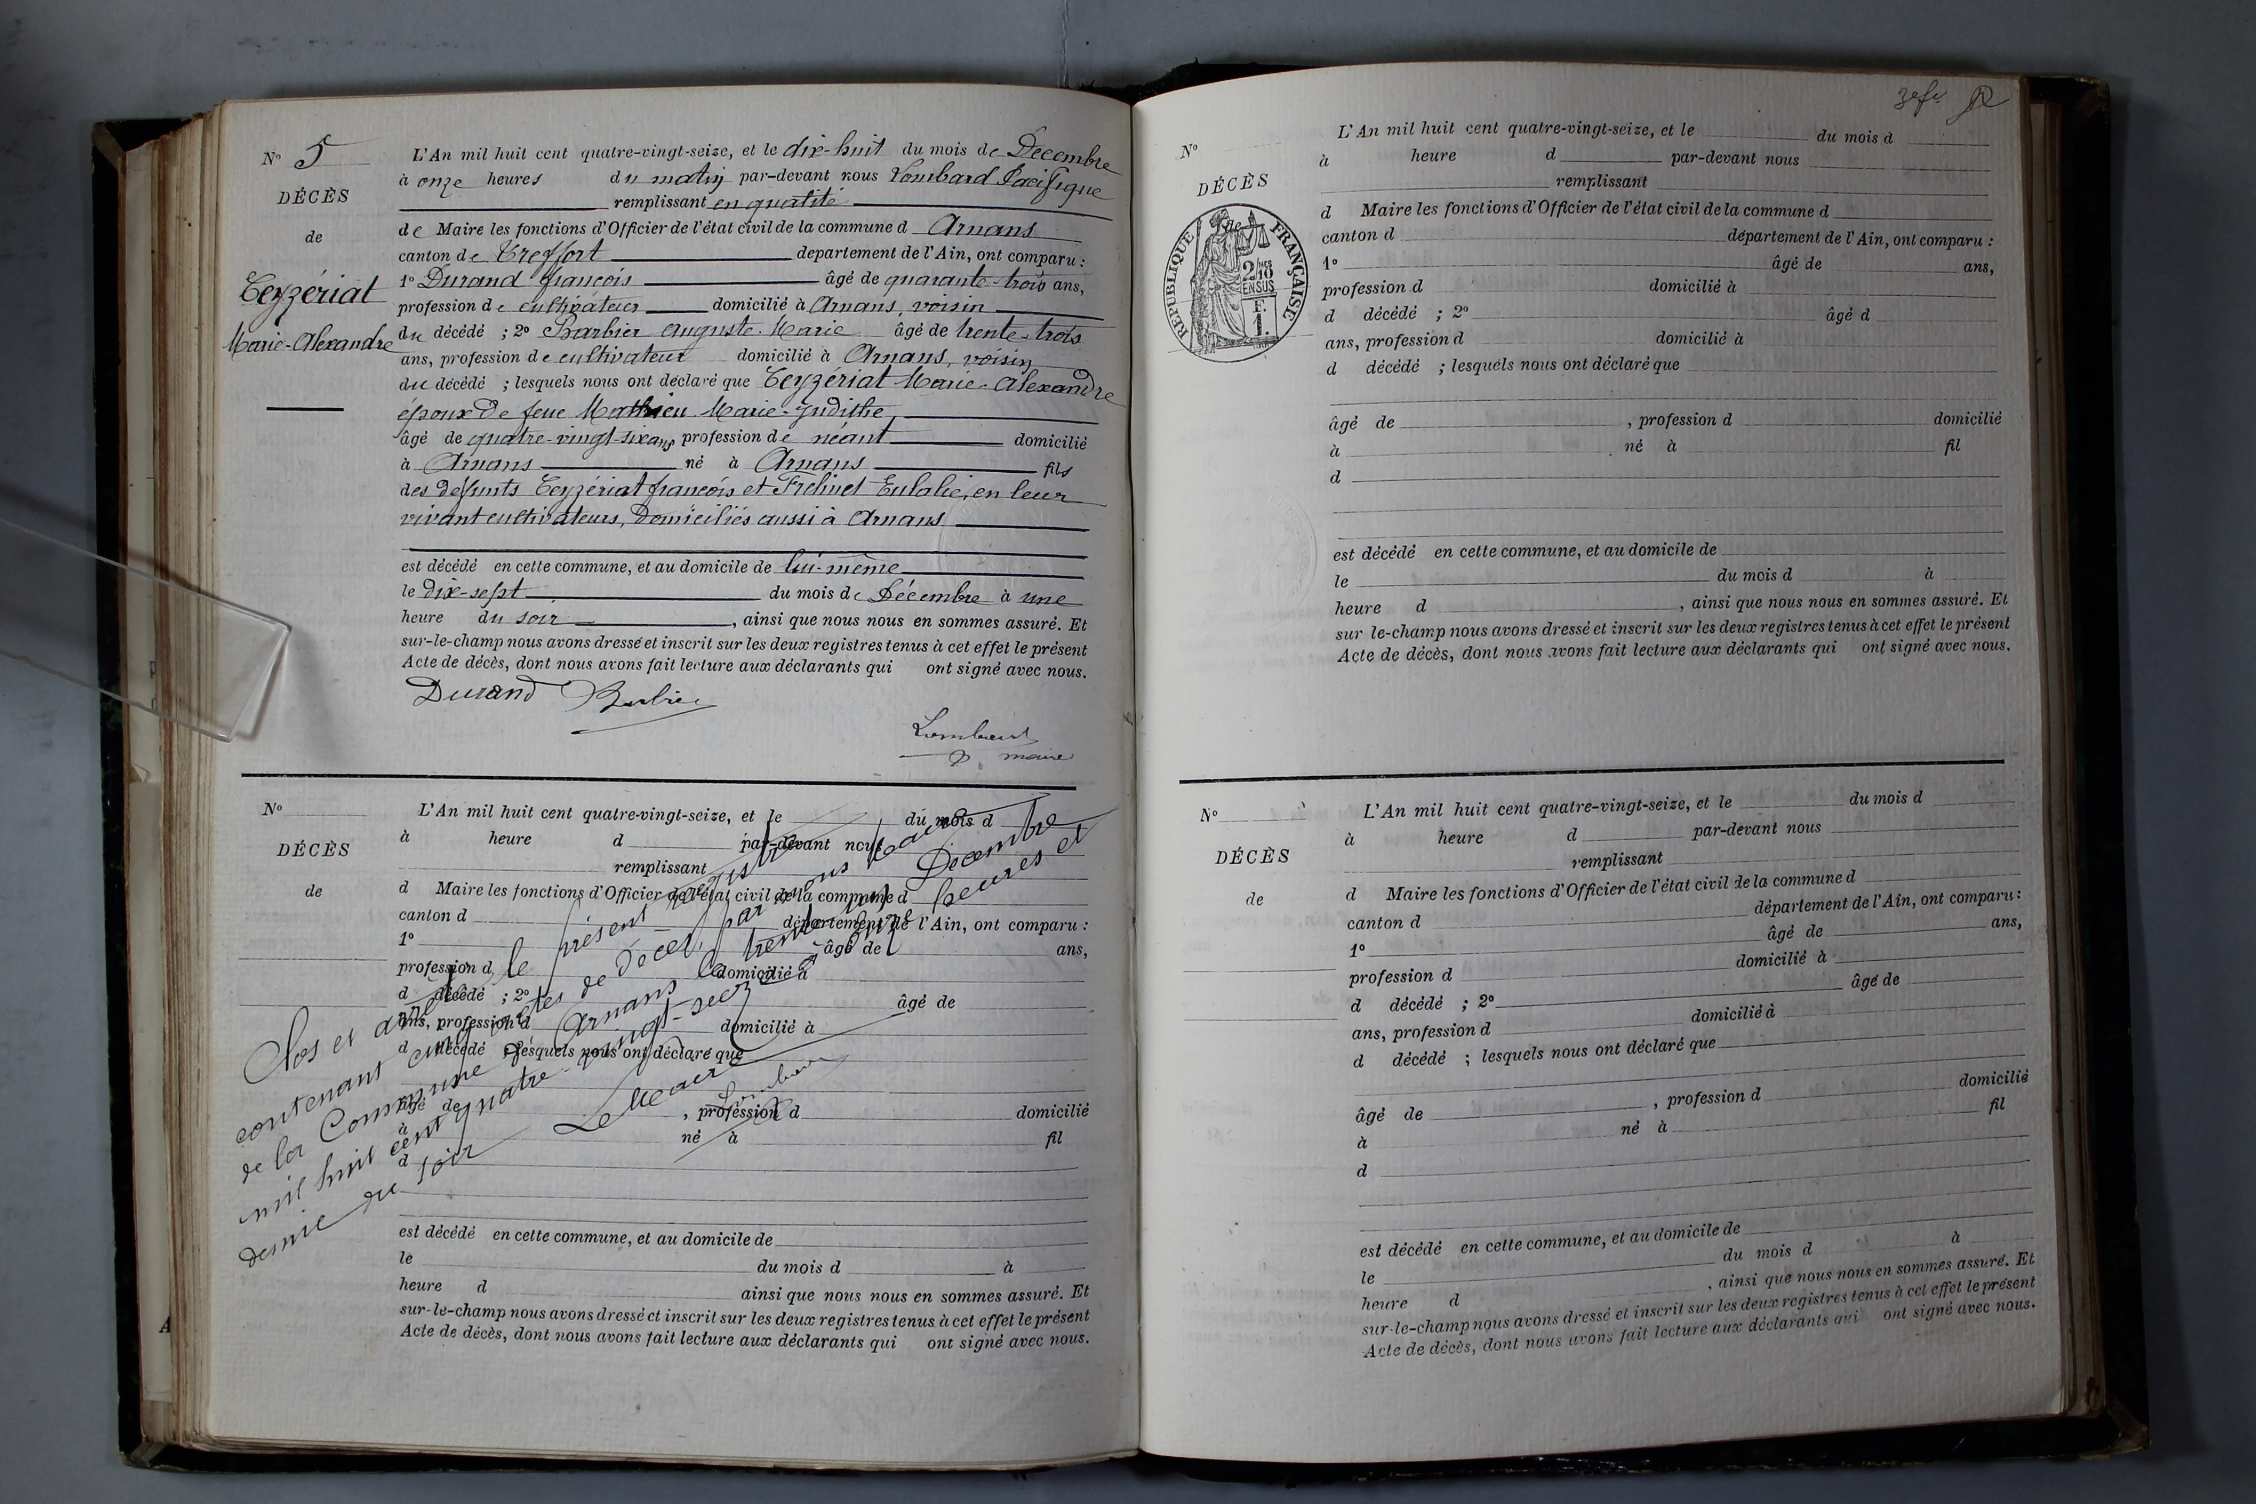 N° 5
DÉCÈS
de
Ceyzériat
Marie-Alexandre
L'An mil huit cent quatre-vingt-seize, et le dix-huit du mois de Décembre
à onze heures du matin par-devant nous Lombard Pacifique
remplissant en qualité
de Maire les fonctions d'Officier de l'état civil de la commune d Arnans
canton de Treffort département de l'Ain, ont comparu :
1° Durand françois âgé de quarante-trois ans,
profession de cultivateur domicilié à Arnans, voisin
du décédé ; 2° Barbier Auguste-Marie âgé de trente-trois
ans, profession de cultivateur domicilié à Arnans, voisin
du décédé ; lesquels nous ont déclaré que Ceyzériat Marie-Alexandre
époux de feue Mathieu Marie-Judithe,
âgé de quatre-vingt-six ans, profession de néant domicilié
à Arnans né à Arnans fils
des defunts Ceyzériat françois et Frelinet Eulalie, en leur
vivant cultivateurs, domiciliés aussi à Arnans
est décédé en cette commune, et au domicile de lui-même
le dix-sept du mois de Décembre à une
heure du soir, ainsi que nous nous en sommes assuré. Et
sur-le-champ nous avons dressé et inscrit sur les deux registres tenus à cet effet le présent
Acte de décès, dont nous avons fait lecture aux déclarants qui ont signé avec nous.
Durand Barbier
Lombard
maire
N°
DÉCÈS
de
L'An mil huit cent quatre-vingt-seize, et le du mois d
à heure d par-devant nous
remplissant
d Maire les fonctions d'Officier de l'état civil de la commune d
canton d département de l'Ain, ont comparu :
1° âgé de ans,
profession d domicilié à
d décédé ; 2° âgé de
ans, profession d domicilié à
d décédé ; lesquels nous ont déclaré que
âgé de , profession d domicilié
à né à fil
d
est décédé en cette commune, et au domicile de
le du mois d à
heure d ainsi que nous nous en sommes assuré. Et
sur-le-champ nous avons dressé et inscrit sur les deux registres tenus à cet effet le présent
Acte de décès, dont nous avons fait lecture aux déclarants qui ont signé avec nous.
Clos et arrêté le présent registre
contenant cinq actes de décès, par nous Maire
de la Commune d'Arnans le trente-un Décembre
mil huit cent quatre-vingt-seize à onze heures et
demie du soir
Le Maire
Lombard
N°
DÉCÈS
de
RÉPUBLIQUE FRANÇAISE
2/10 EN SUS
F. 1.
L'An mil huit cent quatre-vingt-seize, et le du mois d
à heure d par-devant nous
remplissant
d Maire les fonctions d'Officier de l'état civil de la commune d
canton d département de l'Ain, ont comparu :
1° âgé de ans,
profession d domicilié à
d décédé ; 2° âgé d
ans, profession d domicilié à
d décédé ; lesquels nous ont déclaré que
âgé de , profession d domicilié
à né à fil
d
est décédé en cette commune, et au domicile de
le du mois d à
heure d , ainsi que nous nous en sommes assuré. Et
sur le-champ nous avons dressé et inscrit sur les deux registres tenus à cet effet le présent
Acte de décès, dont nous avons fait lecture aux déclarants qui ont signé avec nous.
N°
DÉCÈS
de
L'An mil huit cent quatre-vingt-seize, et le du mois d
à heure d par-devant nous
remplissant
d Maire les fonctions d'Officier de l'état civil de la commune d
canton d département de l'Ain, ont comparu :
1° âgé de ans,
profession d domicilié à
d décédé ; 2° âgé de
ans, profession d domicilié à
d décédé ; lesquels nous ont déclaré que
âgé de , profession d domicilié
à né à fil
d
est décédé en cette commune, et au domicile de
le du mois d à
heure d , ainsi que nous nous en sommes assuré. Et
sur-le-champ nous avons dressé et inscrit sur les deux registres tenus à cet effet le présent
Acte de décès, dont nous avons fait lecture aux déclarants qui ont signé avec nous.